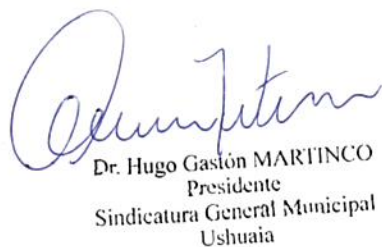 Dr. Hugo Gastón MARTINCO
Presidente
Sindicatura General Municipal
Ushuaia